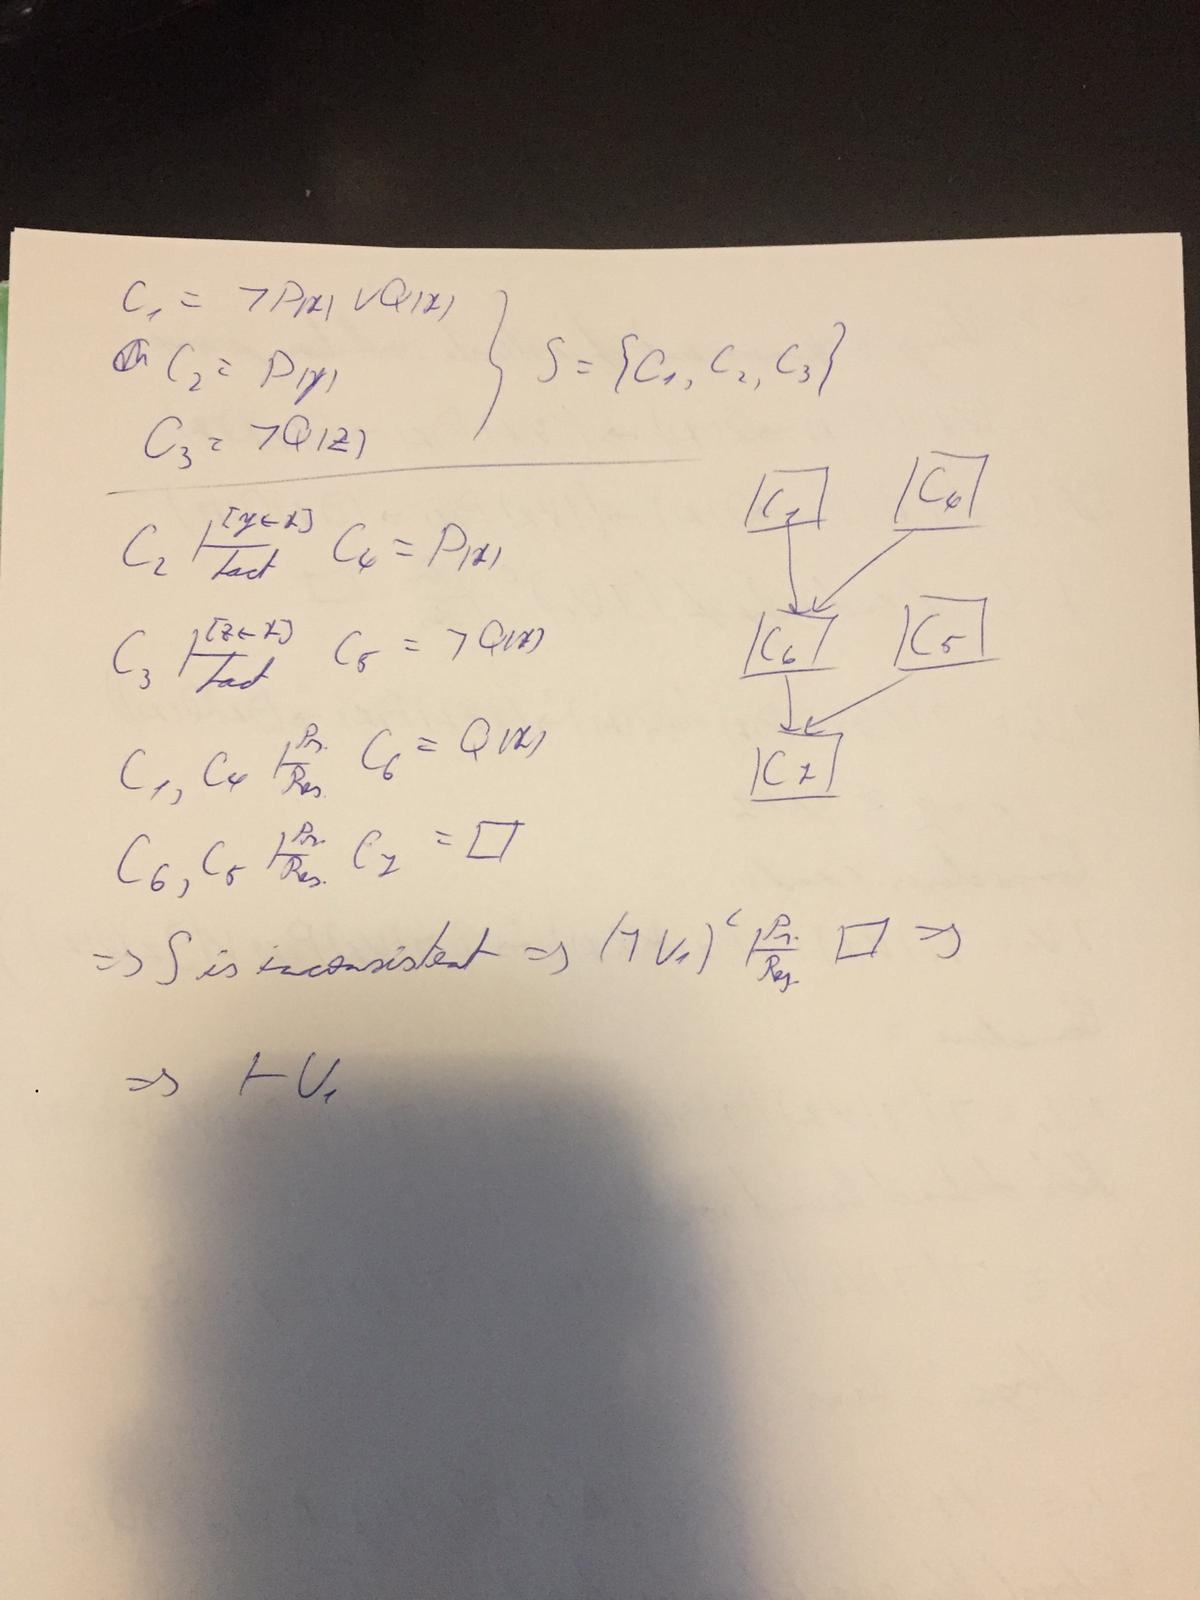 C₁ = ¬P(x) ∨ Q(x)
C₂ = P(y)
C₃ = ¬Q(z)
} S = {C₁, C₂, C₃}
C₂ ⊢[y←x] fact C₄ = P(x)
C₃ ⊢[z←x] fact C₅ = ¬Q(x)
C₁, C₄ ⊢Pr. Res. C₆ = Q(x)
C₆, C₅ ⊢Pr. Res. C₇ = □
⇒ S is inconsistent ⇒ (¬U₁)ᶜ ⊢Pr. Res. □ ⇒
⇒ ⊢ U₁
C₁ C₄
C₆ C₅
C₇